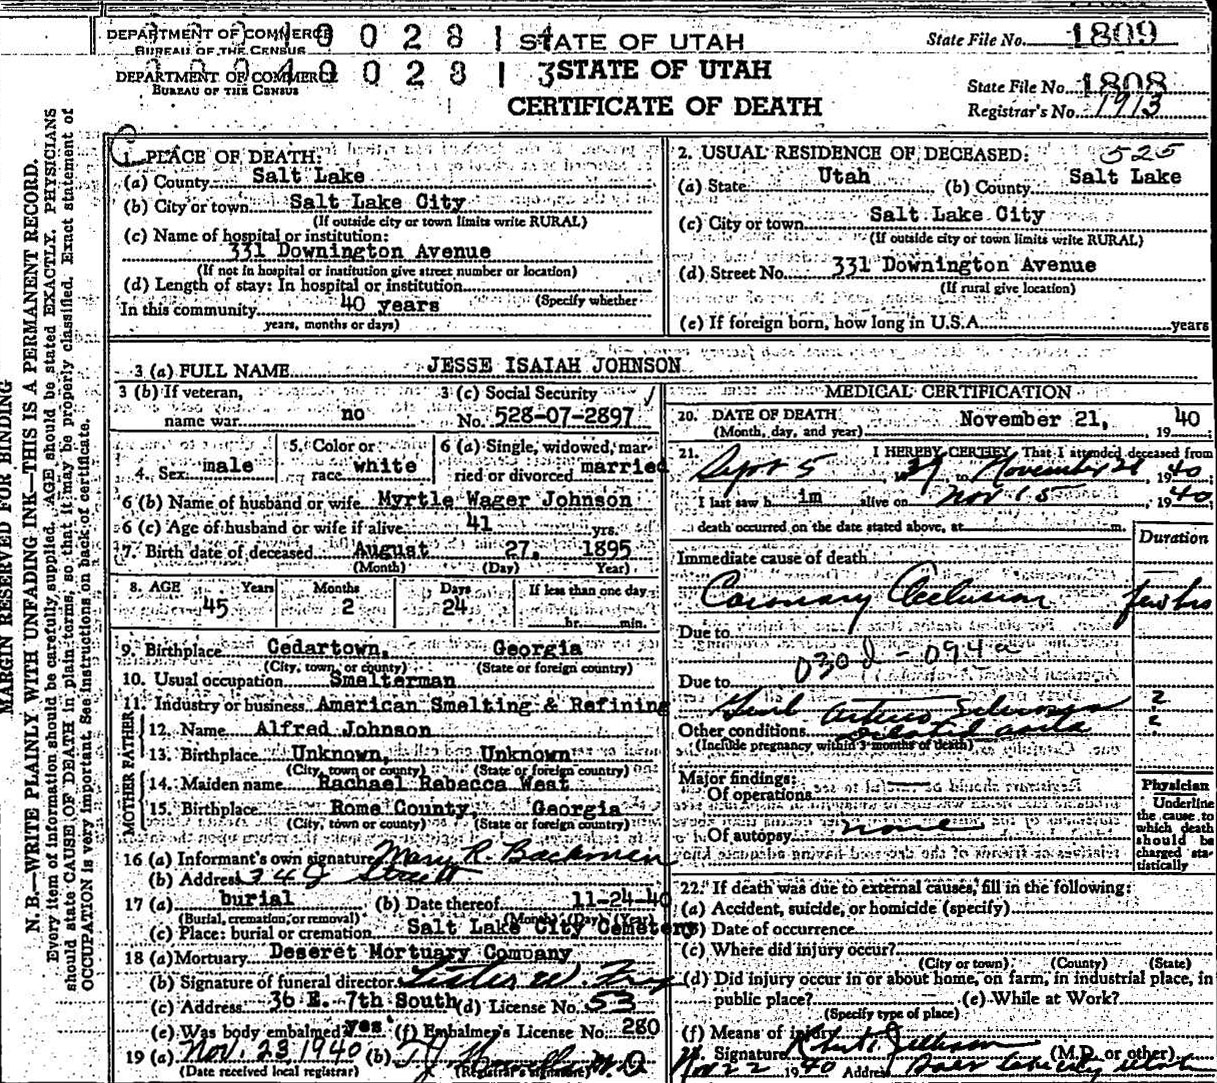 DEPARTMENT OF COMMERCE
BUREAU OF THE CENSUS
STATE OF UTAH
State File No. 1809
DEPARTMENT OF COMMERCE
BUREAU OF THE CENSUS
STATE OF UTAH
CERTIFICATE OF DEATH
State File No. 1808
Registrar's No. 1913
MARGIN RESERVED FOR BINDING
N. B.—WRITE PLAINLY WITH UNFADING INK—THIS IS A PERMANENT RECORD.
Every item of information should be carefully supplied. AGE should be stated EXACTLY. PHYSICIANS
should state CAUSE OF DEATH in plain terms, so that it may be properly classified. Exact statement of
OCCUPATION is very important. See instructions on back of certificate.
1. PLACE OF DEATH:
(a) County Salt Lake
(b) City or town Salt Lake City
(If outside city or town limits write RURAL)
(c) Name of hospital or institution:
331 Downington Avenue
(If not in hospital or institution give street number or location)
(d) Length of stay: In hospital or institution
(Specify whether
In this community 40 years
years, months or days)
2. USUAL RESIDENCE OF DECEASED: 525
(a) State Utah (b) County Salt Lake
(c) City or town Salt Lake City
(If outside city or town limits write RURAL)
(d) Street No. 331 Downington Avenue
(If rural give location)
(e) If foreign born, how long in U.S.A. years
3 (a) FULL NAME JESSE ISAIAH JOHNSON
3 (b) If veteran,
name war no
3 (c) Social Security
No. 528-07-2897
4. Sex male
5. Color or
race white
6 (a) Single, widowed, mar-
ried or divorced married
6 (b) Name of husband or wife Myrtle Wager Johnson
6 (c) Age of husband or wife if alive 41 yrs.
7. Birth date of deceased August 27, 1895
(Month) (Day) Year)
8. AGE Years Months Days If less than one day
45 2 24 hr. min.
9. Birthplace Cedartown, Georgia
(City, town, or county) (State or foreign country)
10. Usual occupation Smelterman
11. Industry or business American Smelting & Refining
FATHER
12. Name Alfred Johnson
13. Birthplace Unknown, Unknown
(City, town or county) (State or foreign country)
MOTHER
14. Maiden name Rachael Rebecca West
15. Birthplace Rome County, Georgia
(City, town or county) (State or foreign country)
16 (a) Informant's own signature Mary R. Backman
(b) Address 34 J Street
17 (a) burial (b) Date thereof 11-24-40
(Burial, cremation, or removal) (Month) (Day) (Year)
(c) Place: burial or cremation Salt Lake City Cemetery
18 (a) Mortuary Deseret Mortuary Company
(b) Signature of funeral director
(c) Address 36 E. 7th South (d) License No. 53
(e) Was body embalmed? yes (f) Embalmer's License No. 280
19 (a) Nov. 23 1940 (b) M.D
(Date received local registrar) (Registrar's signature)
MEDICAL CERTIFICATION
20. DATE OF DEATH November 21, 1940
(Month, day, and year)
21. I HEREBY CERTIFY, That I attended deceased from
Sept 5 39 to November 21, 1940
I last saw h im alive on Nov 15, 1940
death occurred on the date stated above, at m.
Duration
Immediate cause of death
Coronary Occlusion few hrs
Due to
030d - 094a
Due to
Genl Arterio Sclerosis ?
Other conditions Dilated aorta ?
(Include pregnancy within 3 months of death)
Major findings:
Of operations
Of autopsy none
Physician
Underline
the cause to
which death
should be
charged sta-
tistically
22. If death was due to external causes, fill in the following:
(a) Accident, suicide, or homicide (specify)
(b) Date of occurrence
(c) Where did injury occur?
(City or town) (County) (State)
(d) Did injury occur in or about home, on farm, in industrial place, in
public place? (e) While at Work?
(Specify type of place)
(f) Means of injury
Signature (M.D. or other)
Nov 22 1940 Address Salt Lake City Utah